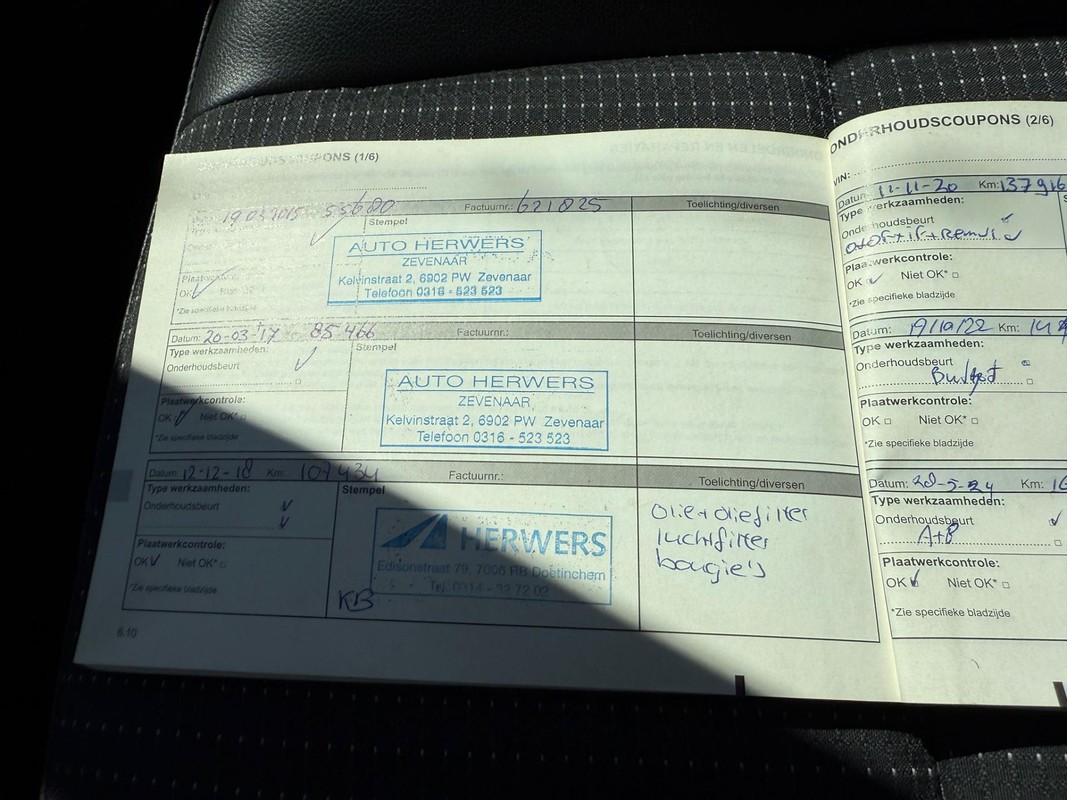 ONDERHOUDSCOUPONS (1/6)
19 03 2015 55680 Factuurnr.: 621825 Toelichting/diversen
Stempel
AUTO HERWERS
ZEVENAAR
Kelvinstraat 2, 6902 PW Zevenaar
Telefoon 0316 - 523 523
Plaatwerkcontrole:
OK
*Zie specifieke bladzijde
Datum: 20-03-17 85 466 Factuurnr.: Toelichting/diversen
Type werkzaamheden: Stempel
Onderhoudsbeurt
AUTO HERWERS
ZEVENAAR
Kelvinstraat 2, 6902 PW Zevenaar
Telefoon 0316 - 523 523
Plaatwerkcontrole:
OK Niet OK*
*Zie specifieke bladzijde
Datum: 12-12-18 Km: 107434 Factuurnr.: Toelichting/diversen
Type werkzaamheden: Stempel
Onderhoudsbeurt
HERWERS
Edisonstraat 79, 7006 RB Doetinchem
Plaatwerkcontrole:
OK Niet OK*
*Zie specifieke bladzijde
KB
Olie+oliefilter
luchtfilter
bougie's
6.10
ONDERHOUDSCOUPONS (2/6)
VIN:
Datum: 12-11-20 Km: 137916
Type werkzaamheden:
Onderhoudsbeurt
Plaatwerkcontrole:
OK Niet OK*
*Zie specifieke bladzijde
Datum: 19/10/22 Km:
Type werkzaamheden:
Onderhoudsbeurt
Budget
Plaatwerkcontrole:
OK Niet OK*
*Zie specifieke bladzijde
Datum: 28-5-24 Km:
Type werkzaamheden:
Onderhoudsbeurt
A+B
Plaatwerkcontrole:
OK Niet OK*
*Zie specifieke bladzijde